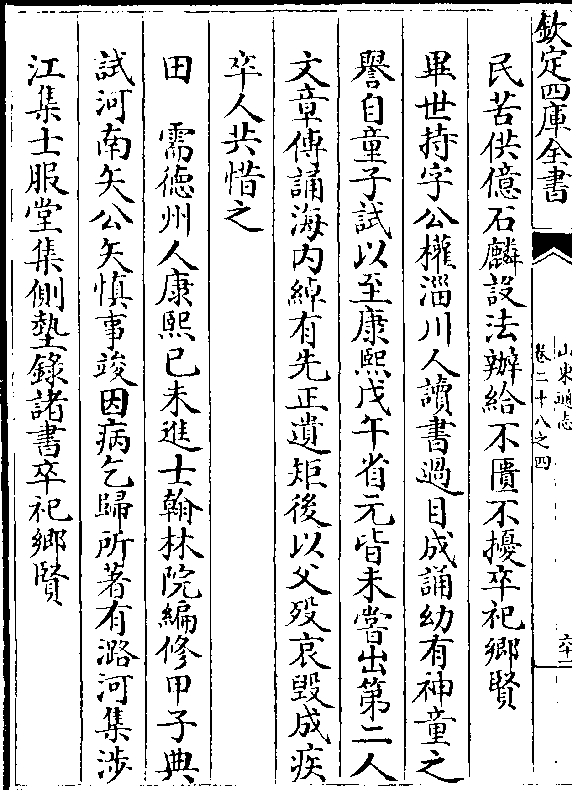 欽定四庫全書
山東通志
卷二十八之四
六十二
民苦供億石麟設法辦給不匱不擾卒祀鄉賢
畢世持字公權淄川人讀書過目成誦幼有神童之
譽自童子試以至康熙戊午省元皆未嘗出第二人
文章傳誦海內綽有先正遺矩後以父歿哀毀成疾
卒人共惜之
田　需德州人康熙己未進士翰林院編修甲子典
試河南矢公矢慎事竣因病乞歸所著有潞河集涉
江集士服堂集側塾錄諸書卒祀鄉賢